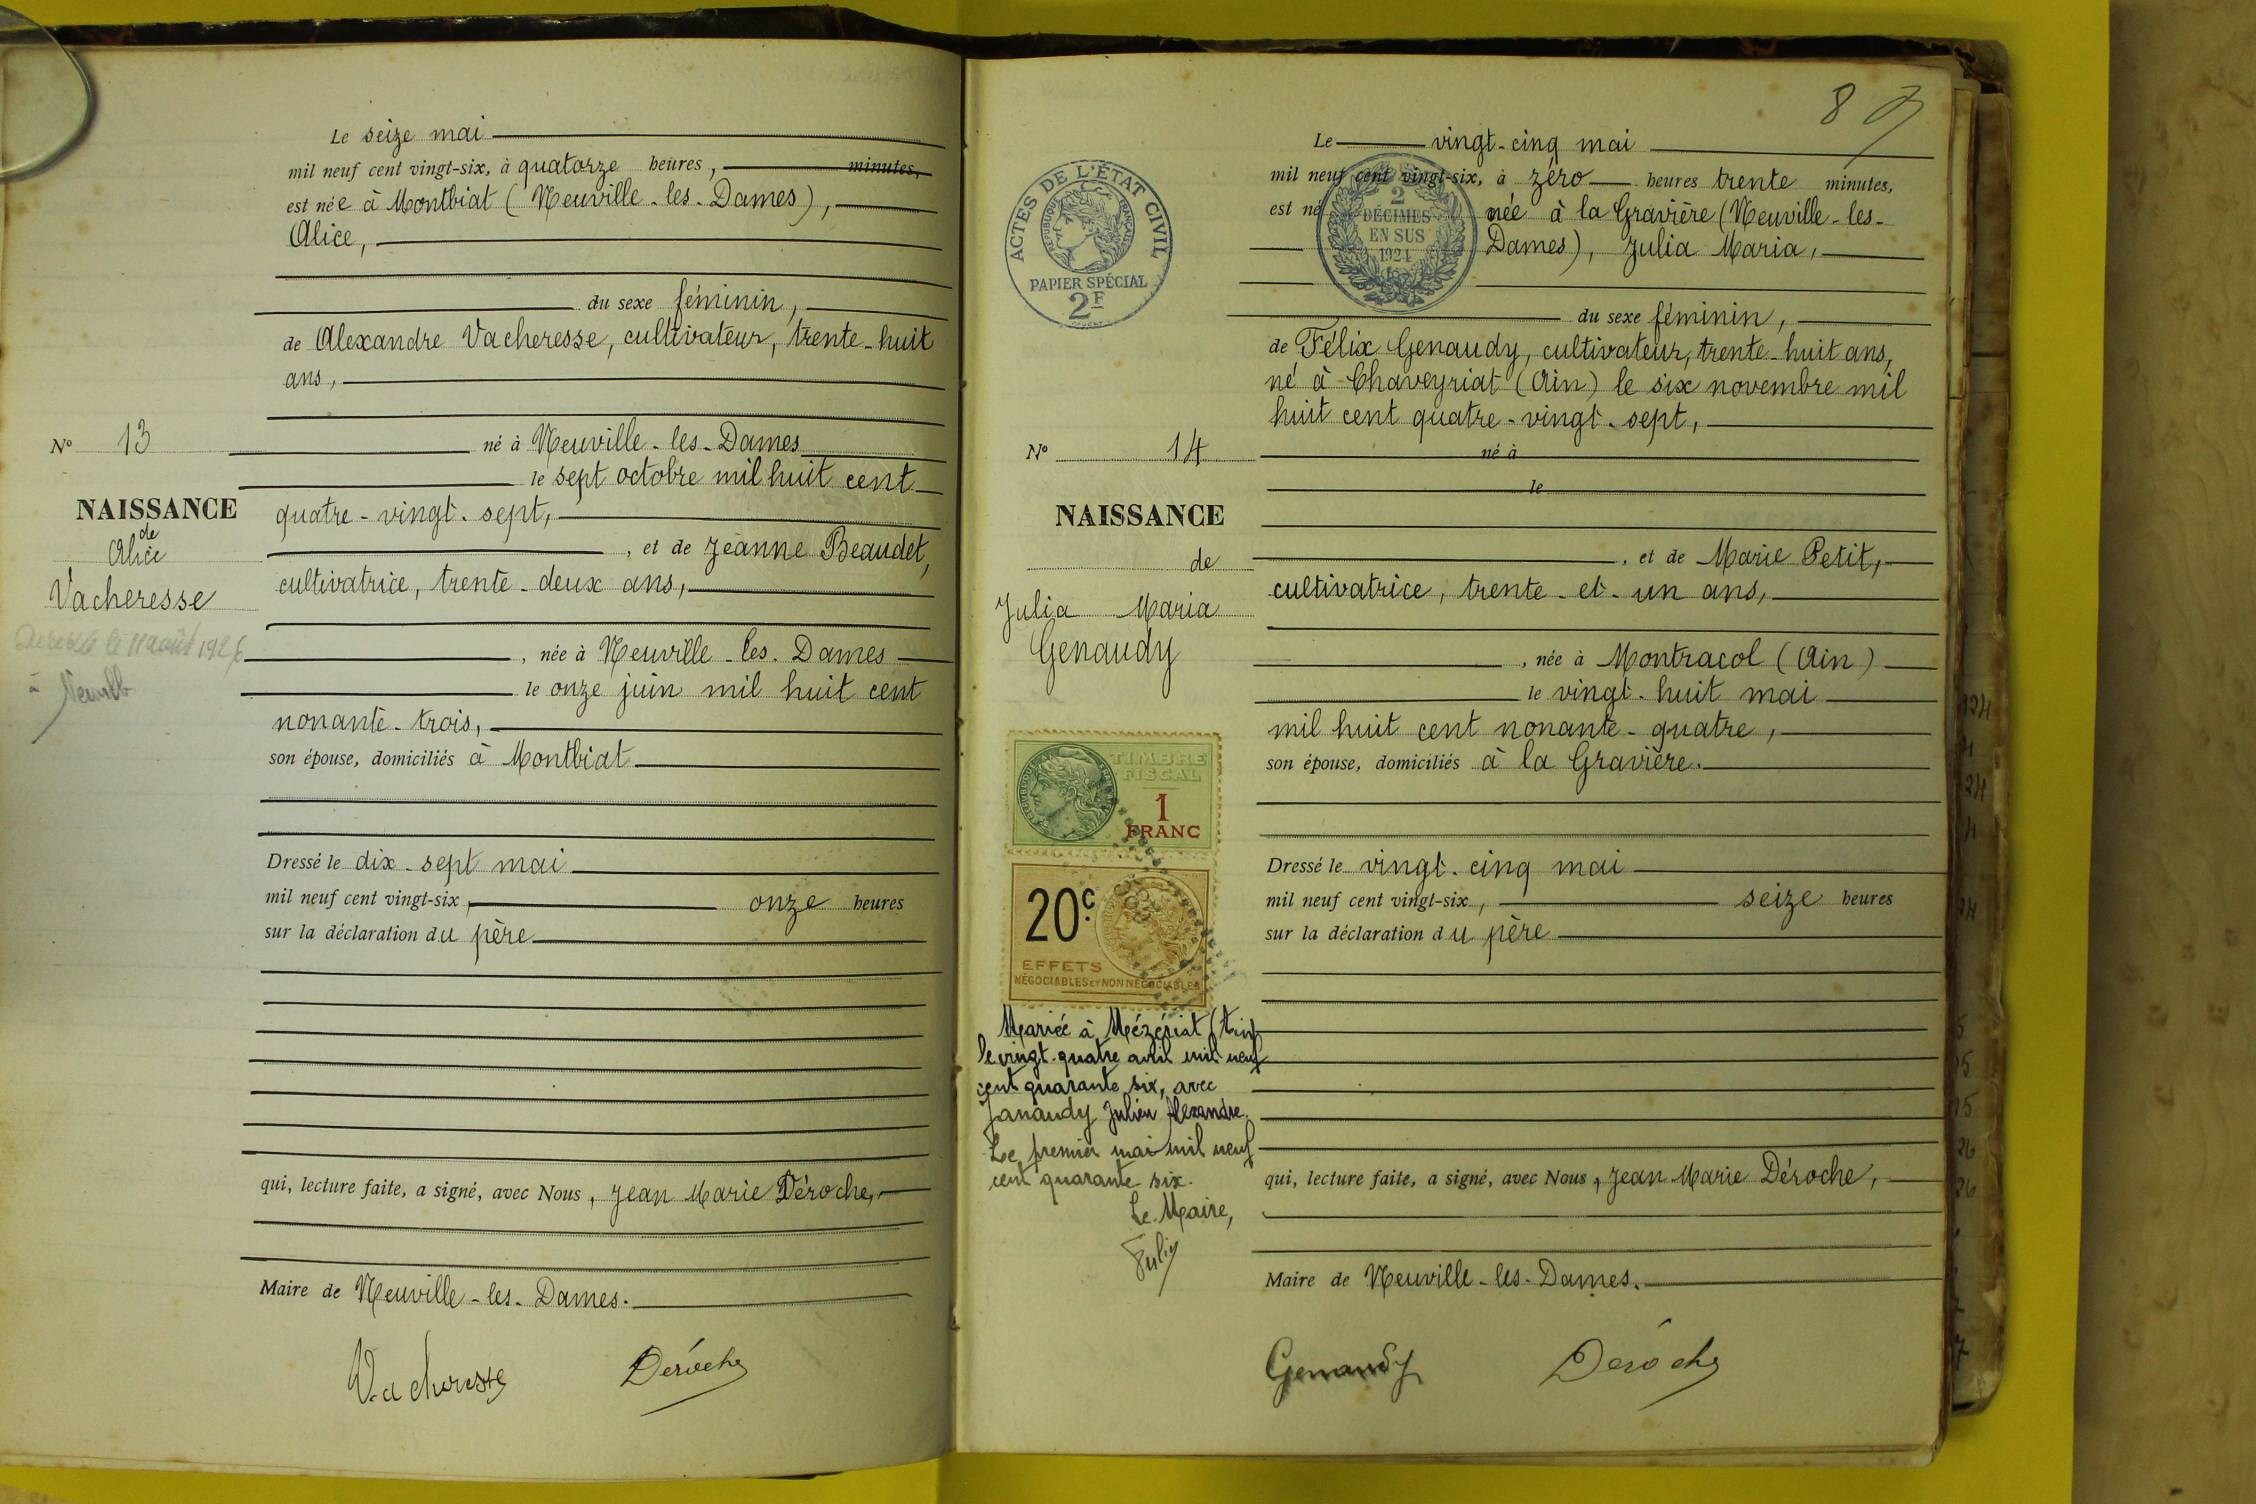 Le seize mai
mil neuf cent vingt-six, à quatorze heures, minutes,
est née à Montbiat (Neuville-les-Dames),
Alice,
du sexe féminin,
de Alexandre Vacheresse, cultivateur, trente-huit
ans,
né à Neuville-les-Dames
le sept octobre mil huit cent
quatre-vingt-sept,
, et de Jeanne Beaudet,
cultivatrice, trente-deux ans,
, née à Neuville-les-Dames
le onze juin mil huit cent
nonante-trois,
son épouse, domiciliés à Montbiat
Dressé le dix-sept mai
mil neuf cent vingt-six, onze heures
sur la déclaration du père
qui, lecture faite, a signé, avec Nous, Jean Marie Déroche,
Maire de Neuville-les-Dames.
Vacheresse Déroche
N° 13
NAISSANCE
de
Alice
Vacheresse
Décédée le 11 août 1926
à Neuville
87
ACTES DE L'ÉTAT CIVIL
RÉPUBLIQUE FRANÇAISE
PAPIER SPÉCIAL
2F
2
DÉCIMES
EN SUS
1924
Le vingt-cinq mai
mil neuf cent vingt-six, à zéro heures trente minutes,
est né née à la Gravière (Neuville-les-
Dames), Julia Maria,
du sexe féminin,
de Félix Genaudy, cultivateur, trente-huit ans,
né à Chaveyriat (Ain) le six novembre mil
huit cent quatre-vingt-sept,
né à
le
, et de Marie Petit,
cultivatrice, trente-et-un ans,
, née à Montracol (Ain)
le vingt-huit mai
mil huit cent nonante-quatre,
son épouse, domiciliés à la Gravière.
Dressé le vingt-cinq mai
mil neuf cent vingt-six, seize heures
sur la déclaration du père
qui, lecture faite, a signé, avec Nous, Jean Marie Déroche,
Maire de Neuville-les-Dames.
Genaudy Déroche
N° 14
NAISSANCE
de
Julia Maria
Genaudy
TIMBRE
FISCAL
1
FRANC
20c.
EFFETS
NÉGOCIABLES ET NON NÉGOCIABLES
Mariée à Mézériat (Ain)
le vingt-quatre avril mil neuf
cent quarante six, avec
Janaudy Julien Alexandre.
Le premier mai mil neuf
cent quarante six.
Le Maire,